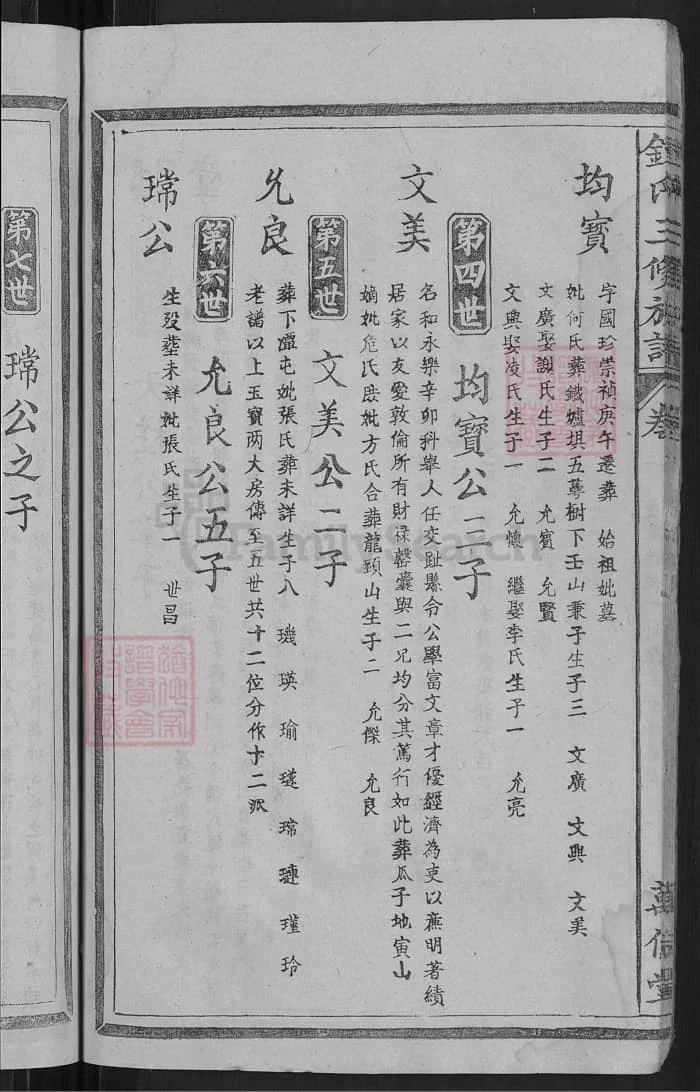 鍾氏三修族譜 卷
萬倍堂
均寶
字國珍崇禎庚午遷葬 始祖妣墓
妣何氏葬鐵爐垻五蕚樹下壬山兼子生子三 文廣 文興 文美
文廣娶謝氏生子二 允賓 允賢
文興娶凌氏生子一 允懷 繼娶李氏生子一 允亮
第四世 均寶公三子
文美
名和永樂辛卯科舉人任交趾縣令公學富文章才優經濟為吏以廉明著績
居家以友愛敦倫所有財祿罄囊與二兄均分其篤行如此葬瓜子地寅山
嫡妣危氏庶妣方氏合葬龍頸山生子二 允傑 允良
第五世 文美公二子
允良
葬下澶屯妣張氏葬未詳生子八 璣 瑛 瑜 璲 瑺 璉 瑾 玲
老譜以上玉寶两大房傳至五世共十二位分作十二派
第六世 允良公五子
瑺公
生歿塋未詳妣張氏生子一 世昌
第七世 瑺公之子
FamilySearch